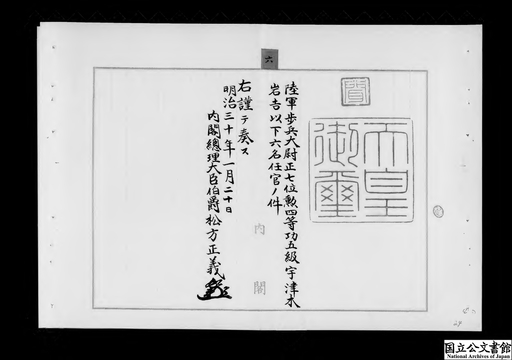 六
天皇
御璽
陸軍歩兵大尉正七位勲四等功五級宇津木
岩吉以下六名任官ノ件
右謹テ奏ス
明治三十年一月二十日
内閣總理大臣伯爵松方正義
内閣
国立公文書館
National Archives of Japan